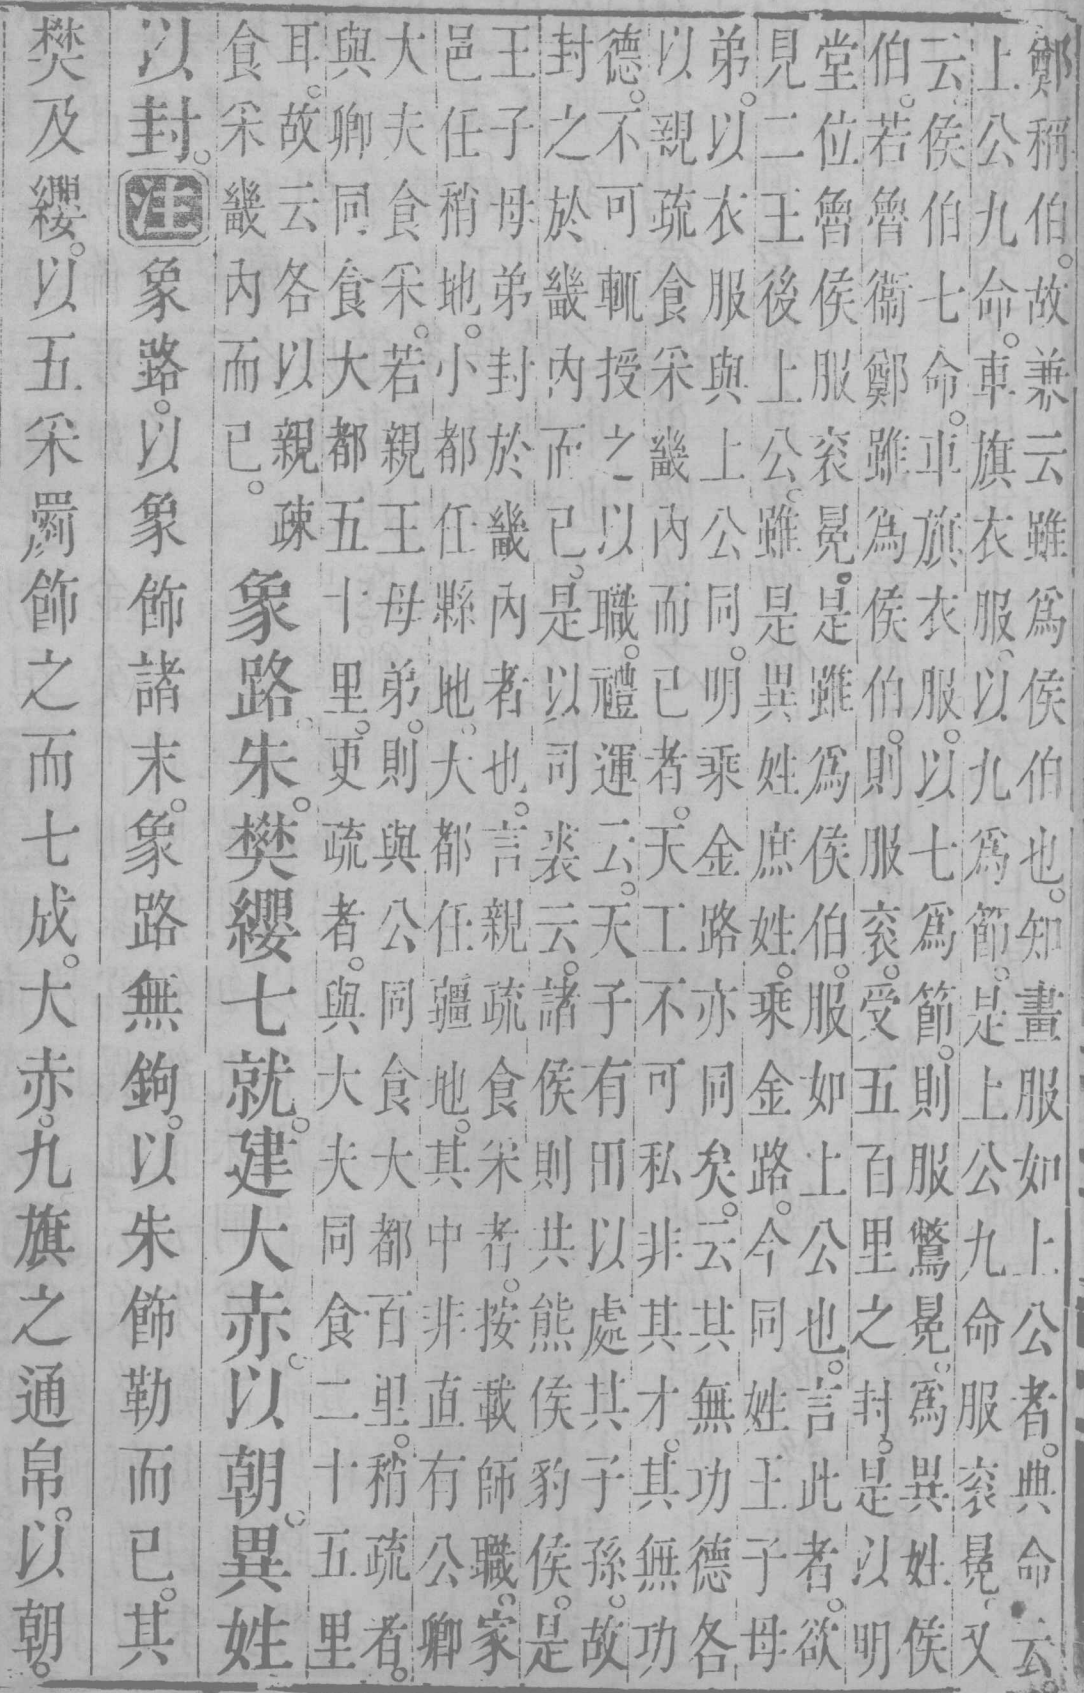 鄭稱伯。故兼云雖爲侯伯也。知畫服如上公者。典命云。
上公九命。車旗衣服、以九爲節。是上公九命服袞冕、又
云、侯伯七命。車旗衣服。以七爲節。則服鷩冕。爲異姓侯
伯。若魯衞鄭雖爲侯伯。則服袞。受五百里之封。是以明
堂位魯侯服袞冕。是雖爲侯伯。服如上公也。言此者。欲
見二王後上公。雖是異姓庶姓。乘金路。今同姓王子母
弟。以衣服與上公同。明乘金路亦同矣。云其無功德各
以親疏食采畿內而已者。天工不可私非其才。其無功
德。不可輒授之以職。禮運云。天子有田以處其子孫。故
封之於畿內而已。是以司裘云。諸侯則共熊侯豹侯。是
王子母弟封於畿內者也。言親疏食采者。按載師職。家
邑任稍地。小都任縣地。大都任疆地。其中非直有公卿
大夫食采。若親王母弟。則與公同食大都百里。稍疏者。
與卿同食大都五十里。更疏者。與大夫同食二十五里
耳。故云各以親疎
食采畿內而已。
象路。朱。樊纓七就。建大赤。以朝。異姓
以封。注象路。以象飾諸末。象路無鉤。以朱飾勒而已。其
樊及纓。以五采罽飾之而七成。大赤。九旗之通帛。以朝。